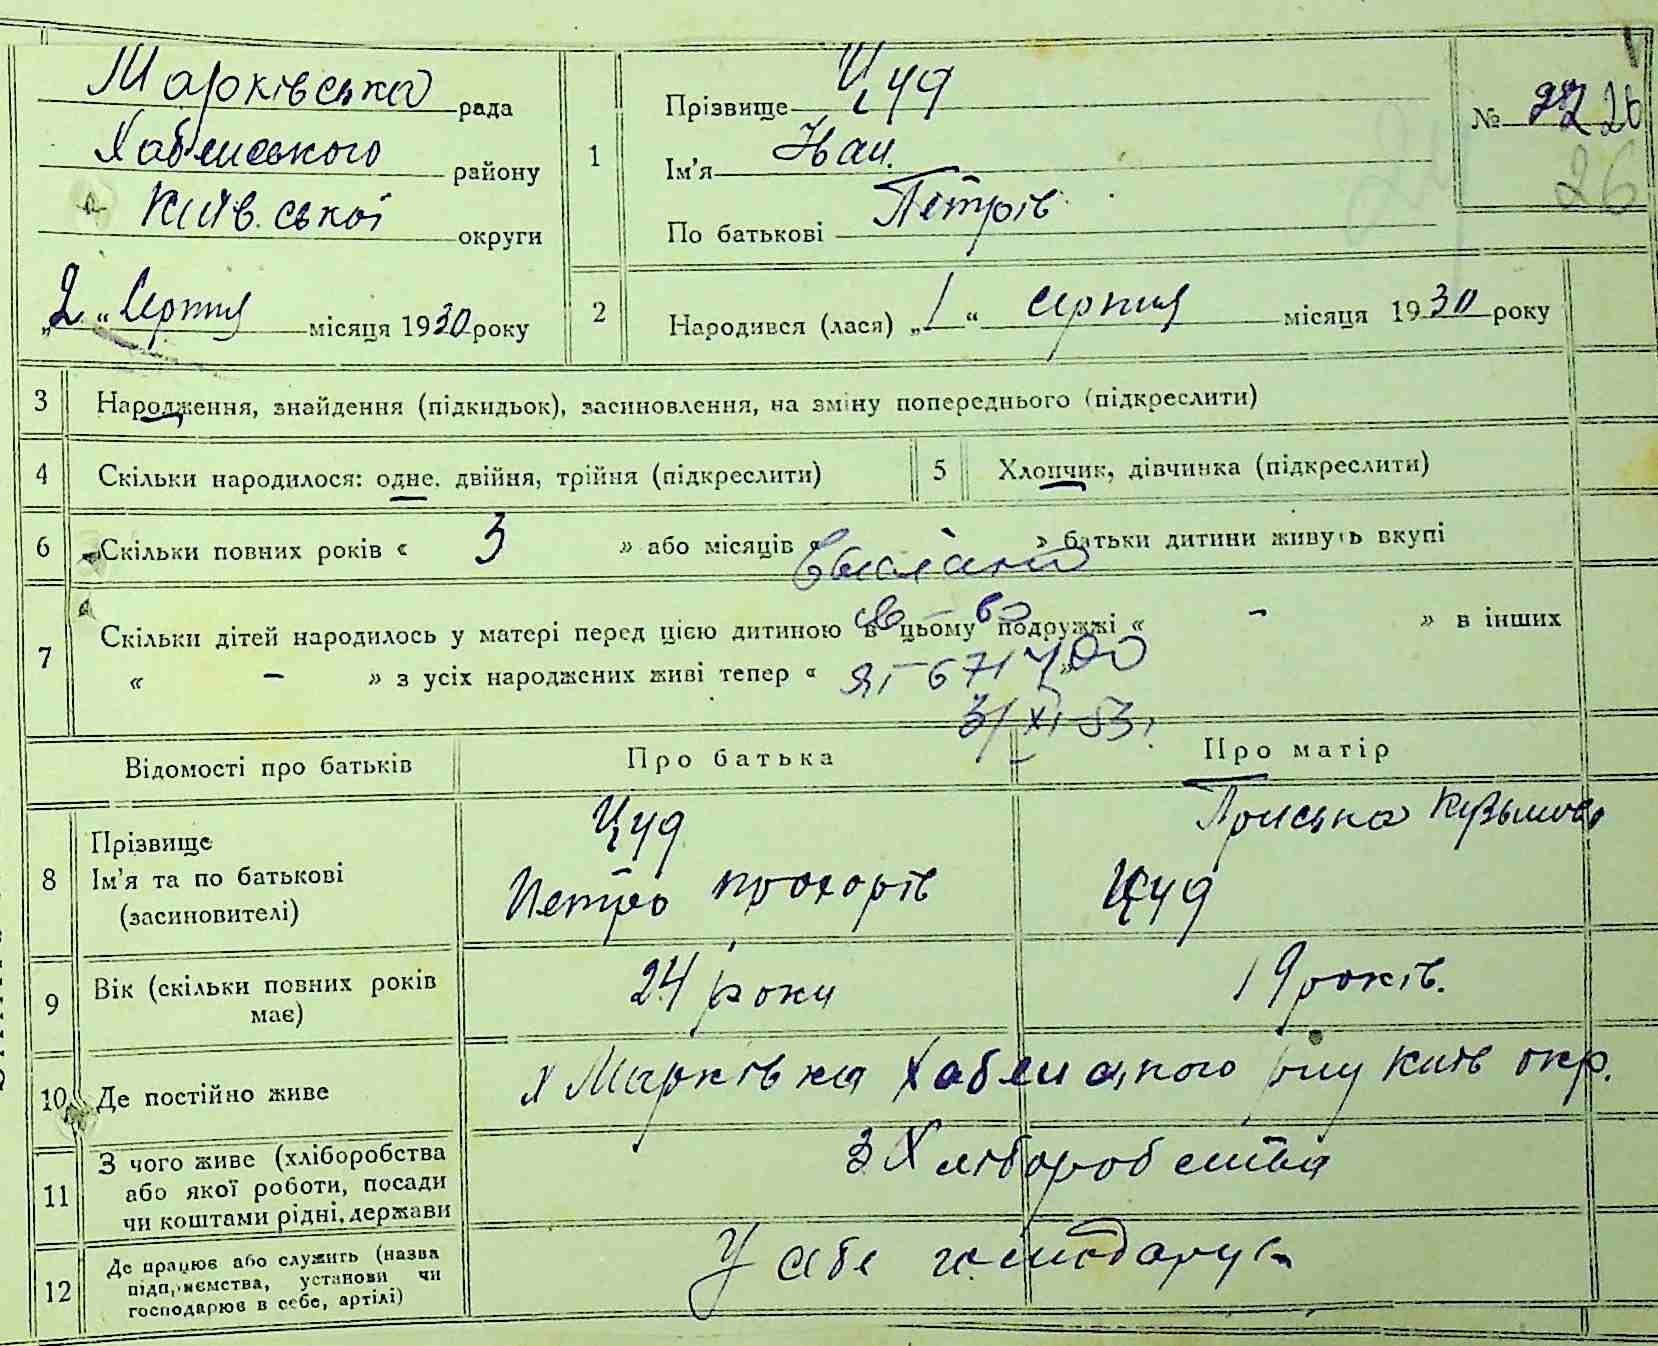 Марківська рада
Хабенського району
Київської округи
„2“ Серпня місяця 1930 року
1
Прізвище Цуд
Ім'я Иван.
По батькові Петрів
№ 26
26
2
Народився (лася) „1“ серпня місяця 1930 року
3 Народження, знайдення (підкидьок), засиновлення, на зміну попереднього (підкреслити)
4 Скільки народилося: одне, двійня, трійня (підкреслити)
5 Хлопчик, дівчинка (підкреслити)
6 Скільки повних років « 3 » або місяців « » батьки дитини живуть вкупі
Выслано
7 Скільки дітей народилось у матері перед цією дитиною в цьому подружжі « - » в інших
« - » з усіх народжених живі тепер «
св-во
671400
3/XI-53.
Відомості про батьків
Про батька
Про матір
8 Прізвище
Ім'я та по батькові
(засиновителі)
Цуд
Петро Прохорів
Приська Кузьмова
Цуд
9 Вік (скільки повних років
має)
24 роки
19 років.
10 Де постійно живе
х Марківка Хабенского р-ну Київ окр.
11 З чого живе (хліборобства
або якої роботи, посади
чи коштами рідні, держави
З Хліборобства
12 Де працює або служить (назва
підприємства, установи чи
господарює в себе, артілі)
У себе господарує